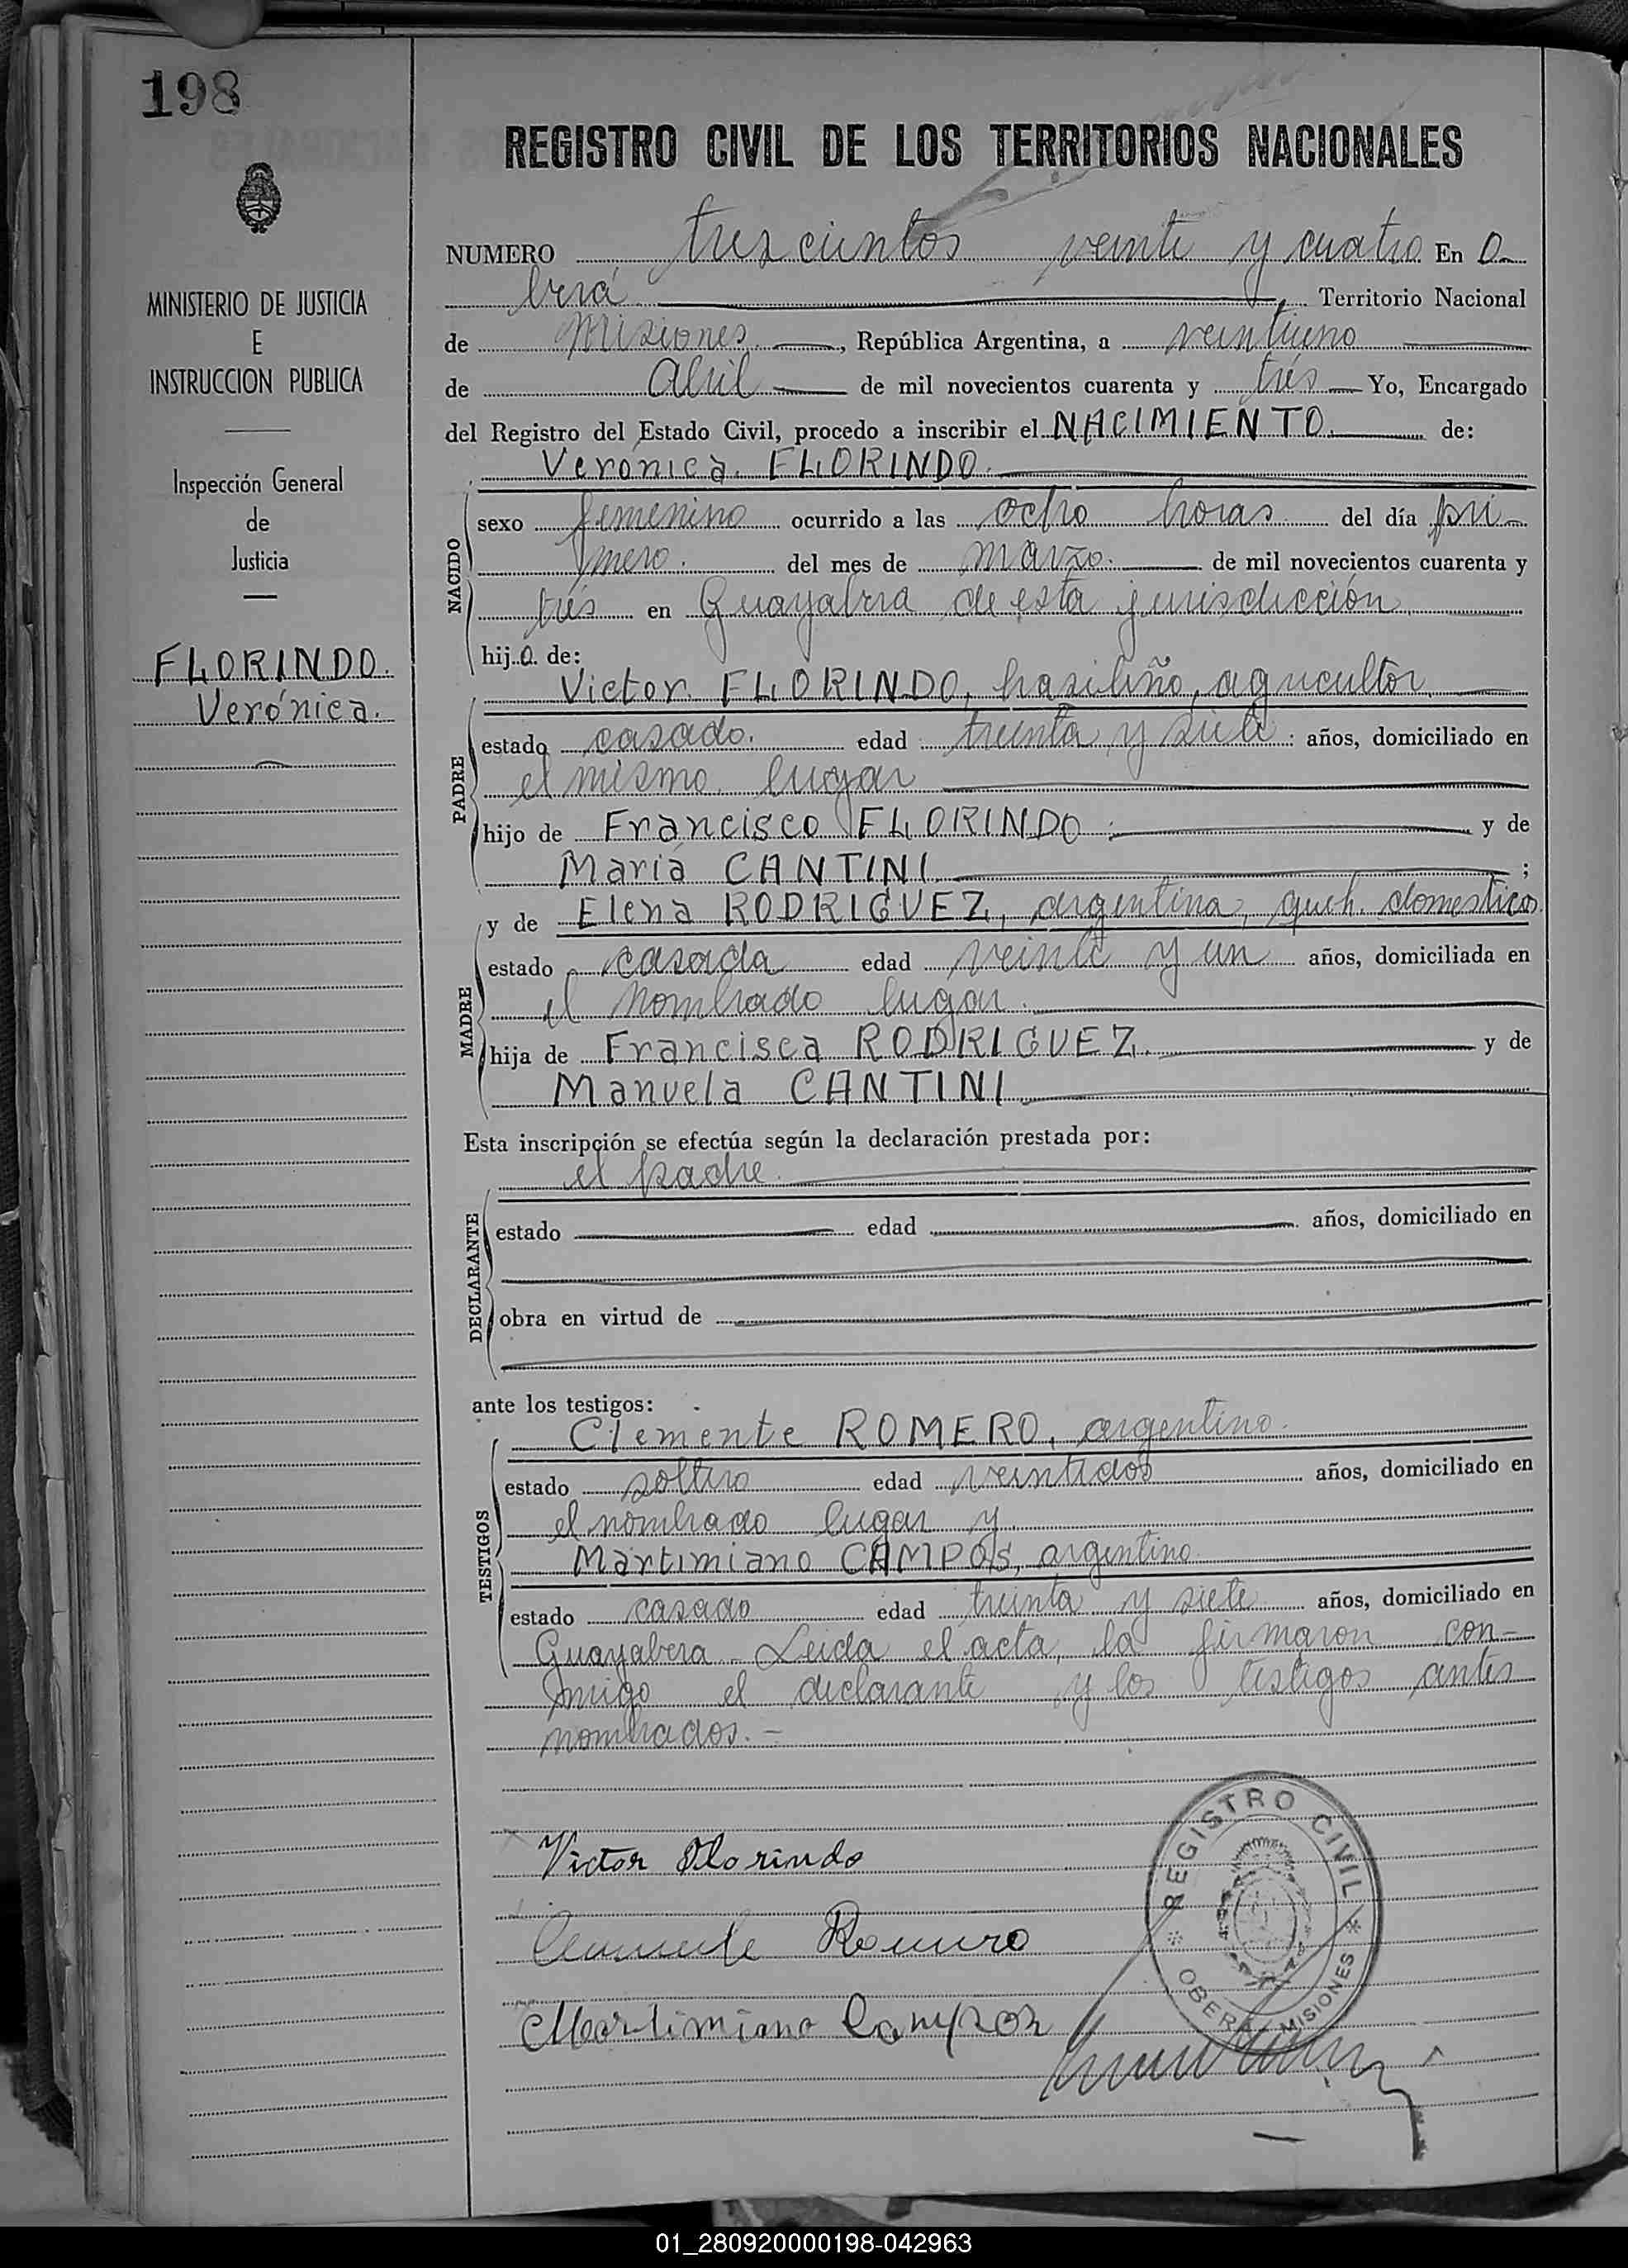 198
MINISTERIO DE JUSTICIA
E
INSTRUCCION PUBLICA
Inspección General
de
Justicia
FLORINDO.
Verónica.
REGISTRO CIVIL DE LOS TERRITORIOS NACIONALES
NUMERO trescientos veinte y cuatro En O-
berá, Territorio Nacional
de Misiones, República Argentina, a veintiuno
de Abril de mil novecientos cuarenta y trés Yo, Encargado
del Registro del Estado Civil, procedo a inscribir el NACIMIENTO. de:
Verónica. FLORINDO.
NACIDO
sexo femenino ocurrido a las ocho horas del día pri-
mero. del mes de marzo. de mil novecientos cuarenta y
trés en Guayabera de esta jurisdicción
hij a de:
PADRE
Victor FLORINDO, brasileño, agricultor
estado casado. edad treinta y siete: años, domiciliado en
el mismo lugar
hijo de Francisco FLORINDO: y de
María CANTINI;
MADRE
y de Elena RODRIGUEZ, argentina, queh. domesticos
estado casada edad veinte y un años, domiciliada en
el nombrado lugar.
hija de Francisca RODRIGUEZ. y de
Manuela CANTINI
Esta inscripción se efectúa según la declaración prestada por:
el padre.
DECLARANTE
estado edad años, domiciliado en
obra en virtud de
ante los testigos:
TESTIGOS
Clemente ROMERO, argentino.
estado soltero edad veintidos años, domiciliado en
el nombrado lugar y
Martimiano CAMPOS, argentino
estado casado edad treinta y siete años, domiciliado en
Guayabera - Leida el acta, la firmaron con-
migo el declarante y los testigos antes
nombrados. -
Victor Florindo
Clemente Romero
Martimiano Campos
REGISTRO CIVIL
OBERÁ MISIONES
01_280920000198-042963